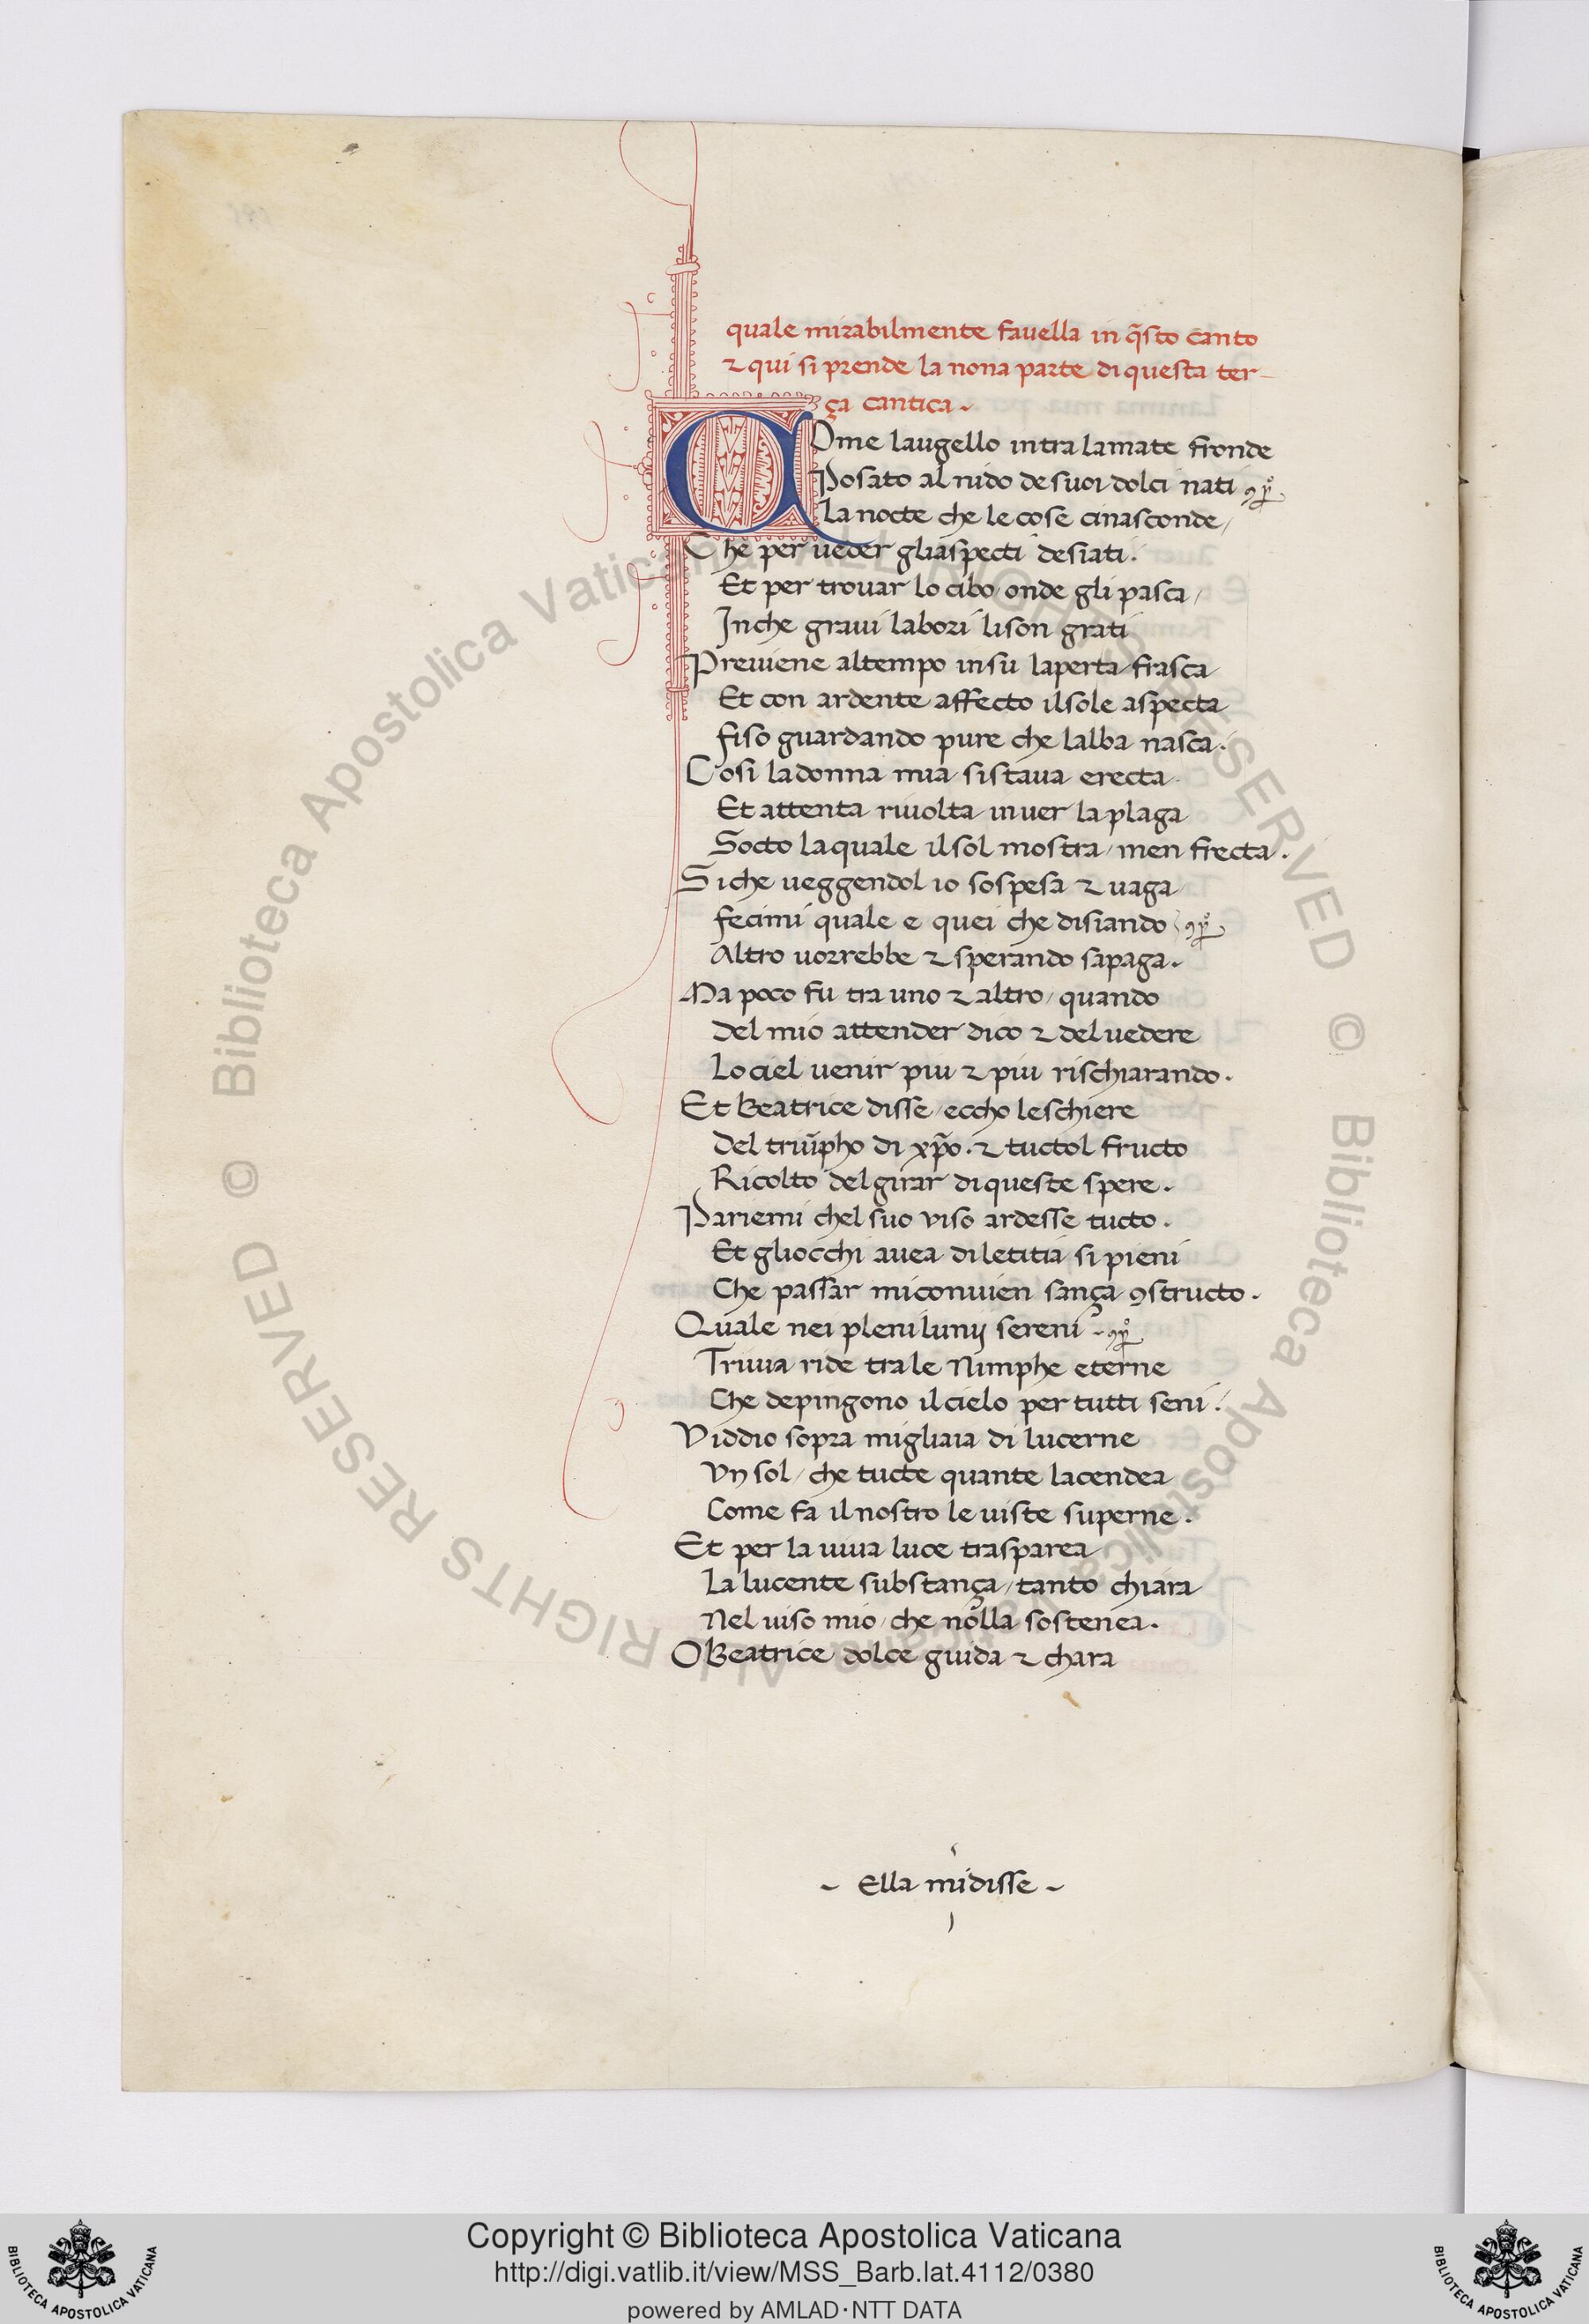 quale mirabilmente favella in q̃sto canto
⁊ qui si prende la nona parte di questa ter-
ça cantica.
COme laugello intra lamate fronde
Posato al nido de suoi dolci nati
La nocte che le cose cinasconde,
Che per ueder gliaspecti desiati.
Et per trouar lo cibo onde gli pasca,
Inche graui labori lison grati
Preuiene altempo insu laperta frasca
Et con ardente affecto ilsole aspecta
fiso guardando pure che lalba nasca.
Cosi ladonna mia sistaua erecta
Et attenta riuolta inuer la plaga
Socto laquale ilsol mostra, men frecta.
Siche ueggendol io sospesa ⁊ uaga
fecimi quale e quei che disiando
Altro uorrebbe ⁊ sperando sapaga.
Ma poco fu tra uno ⁊ altro, quando
Del mio attender dico ⁊ del uedere
Lo ciel uenir piu ⁊ piu rischiarando.
Et Beatrice disse, eccho le schiere
Del triũpho di xp̃o. ⁊ tuctol fructo
Ricolto del girar di queste spere.
Pariemi chel suo viso ardesse tucto.
Et gliocchi auea di letitia si pieni
Che passar miconuien sança ꝯstructo.
Quale nei plenilunij sereni
Triuia ride trale Nimphe eterne
Che depingono ilcielo per tutti seni.
Viddio sopra migliaia di lucerne
Vn sol, che tucte quante lacendea
Come fa ilnostro le uiste superne.
Et per la uiua luce trasparea
La lucente substança, tanto chiara
Nel uiso mio, che nolla sostenea.
O Beatrice dolce guida ⁊ chara
- Ella midisse -
Copyright © Biblioteca Apostolica Vaticana
http://digi.vatlib.it/view/MSS_Barb.lat.4112/0380
powered by AMLAD·NTT DATA
BIBLIOTECA APOSTOLICA VATICANA
BIBLIOTECA APOSTOLICA VATICANA
© Biblioteca Apostolica Vaticana ALL RIGHTS RESERVED © Biblioteca Apostolica Vaticana ALL RIGHTS RESERVED